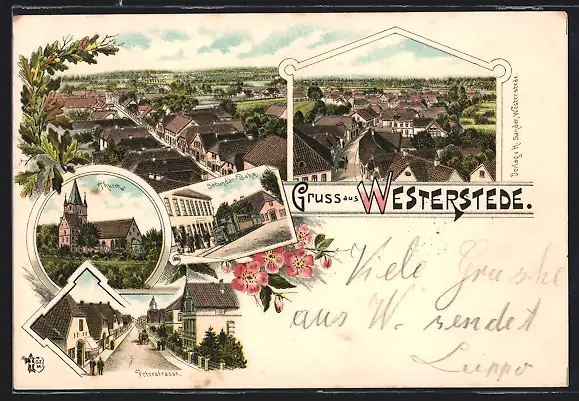 Gruss aus WESTERSTEDE.
Thurm
Secundär-Bahn
Peterstrasse.
Verlag v. H. Sander, Westerstede.
Viele Grüsse
aus W. sendet
Luppo